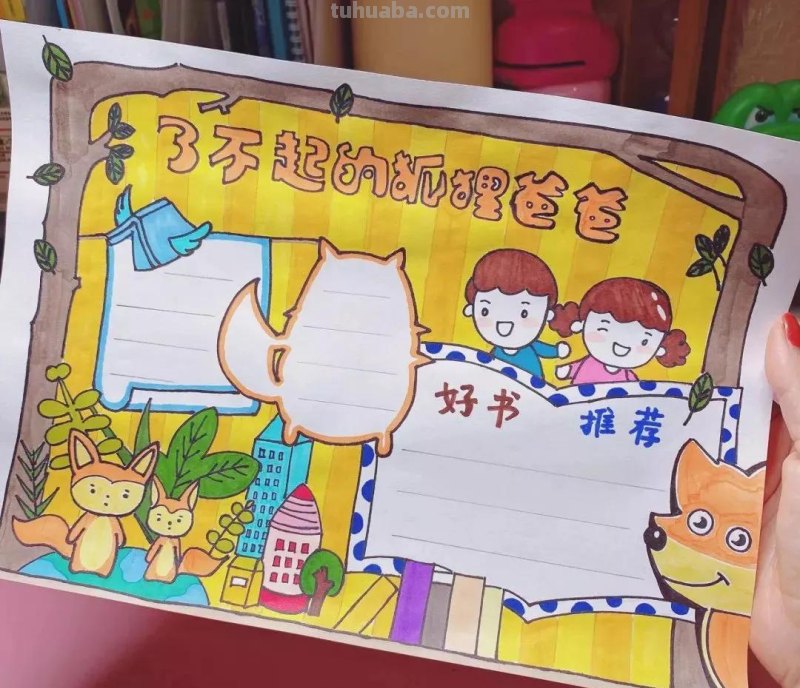 tuhuaba.com
了不起的狐狸爸爸
好书 推荐